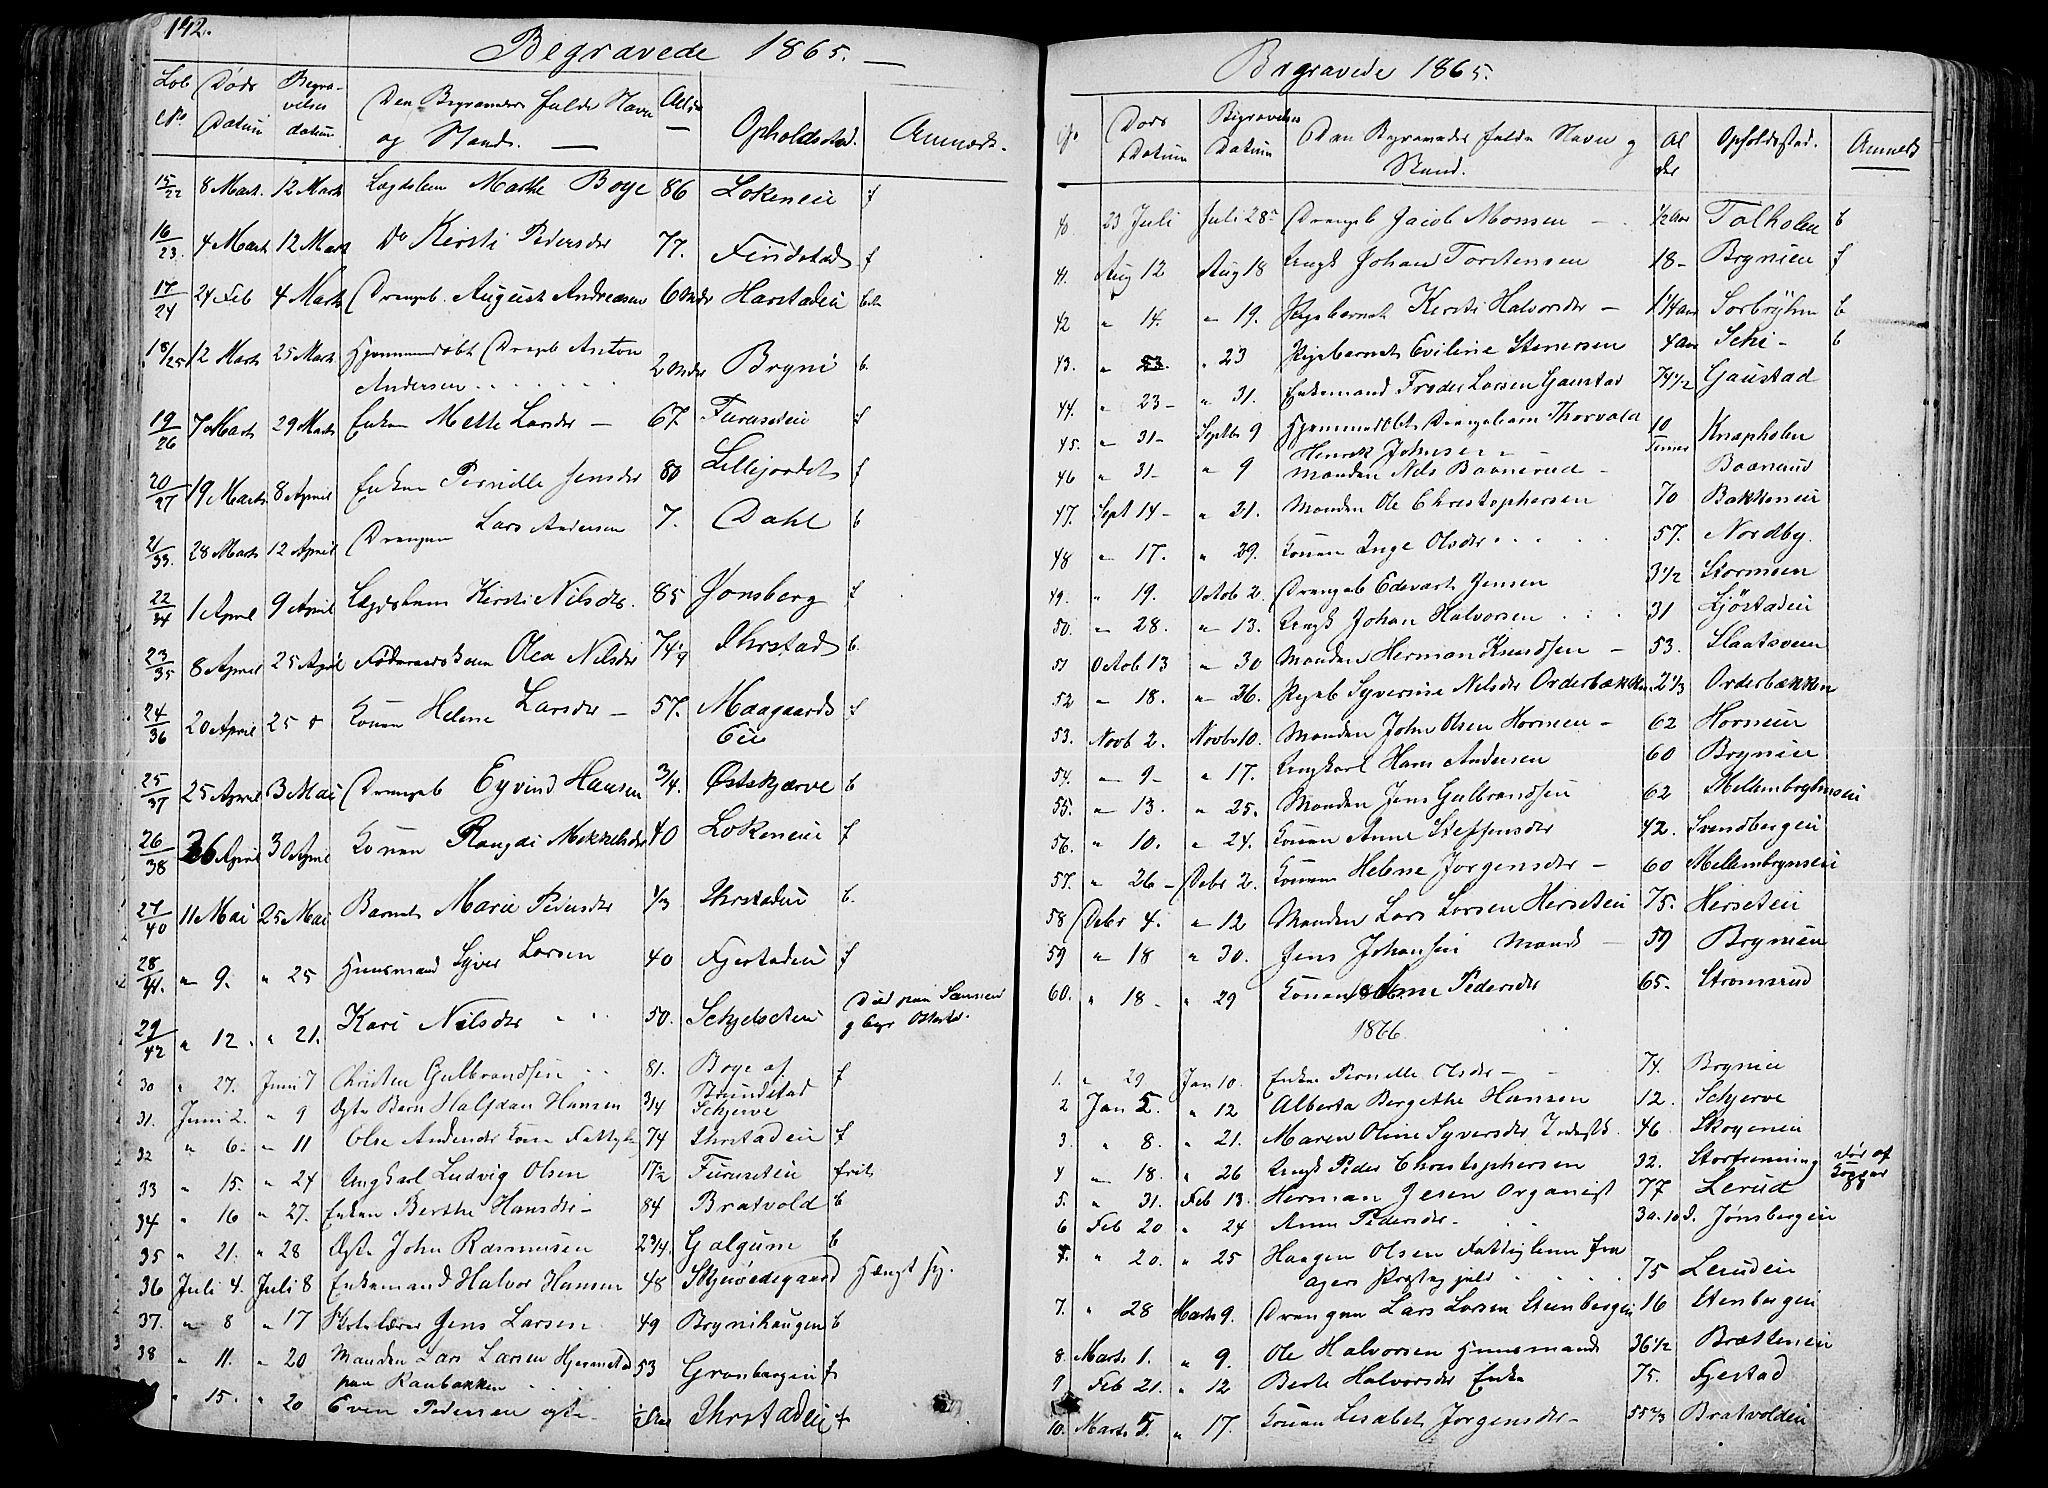 142.
Begravede 1865.
Lob No Døds Datum Begravelses datum Den Begravedes fulde Navn og Stand. Alder Opholdssted. Anmærk.
15/22 8 Marts 12 Marts Lægdslem Marthe Boye 86 Lokeneie f
16/23. 4 Marts 12 Marts Do Kirsti Pedersdr 77. Findstad f
17/24 24 Feb 4 Marts Drengeb. August Andreasen 6 Mdr Harstadeie
18/25 12 Marts 25 Marts Hjemmedøbt Drngb Anton
Andersen . . . . . . 2 Mdr Bryni b.
19/26 7 Marts 29 Marts Enken Mette Larsdr – 67. Furuseteie f
20/27 19 Marts 8 April Enken Pernille Jensdr 80 Lillejordet f
21/33. 28 Marts 12 April Drengen Lars Andersen 7. Dahl b
22/34 1 April 9 April Lægdslem Kirsti Nilsdr. 85 Jonsberg f
23/35 8 April 25 April Føderaadskone Olea Nilsdr 74 Ihrstad b.
24/36 20 April 25 Konen Helene Larsdr – 57. Maagaards f
Eie
25/37 25 April 3 Mai Drengeb Eyvind Hansen 3/4. Østskjærve b
26/38 26 April 30 April Konen Rangdi Mikkelsdr 40 Lokeneie f
27/40 11 Mai 25 Mai Barnet Marie Pedersdr 1/3 Ihrstadeie b.
28/41. " 9. " 25 Huusmand Syver Larsen 40 Fjestadeie f
29/42 " 12. " 21. Kari Nilsdr 50. Schjelseteie Død paa
30 " 27. Juni 7 Christen Gulbrandsen 81. Boye af f
Brundstad
31. Juni 2. " 9 Ogte Barn Halfdan Hansen 3/4 Schjerve
32 " 6. " 11 Olse Andersdr Kone 74 Ihrstadeie f
33 " 15. " 24 Ungkarl Ludvig Olsen 17 1/2 Furuseteie frit
34 " 16 " 27. Enken Berthe Hansdr – 84 Bratvold b
35 " 21. " 28 Ogte John Rasmusen 2 3/4. Galgum b
36 Juli 4. Juli 8 Enkemand Halvor Hansen 48 Skjervedegaard Hængt sig.
37. " 8 " 17 Skolelærer Jens Larsen 49 Brynihaugen b
38 " 11. " 20 Manden Lars Larsen Hjermstad 53 Gronbergeie f
paa Ranbakken
" 15. " 20 Even Pedersen ogte 1/2 Aar Ihrstadeie f
Begravede 1865.
No Døds Datum Begravelses Datum Den Begravedes fulde Navn og Stand. Alder Opholdssted. Anmerk
40 23 Juli Juli 28 Drengeb Jacob Monsen – 1/2 Aar Tolholen b
41. Aug 12 Aug 18 Ungk Johan Torstensen 18 – Brynieie f
42 " 14. " 19. Pigebarnet Kirsti Halvorsdr – 1 1/4 Aar Sorbryhn b
43. " 23. " 23 Pigebarnet Eviline Stenersen 4 Aar Schi – b
44. " 23 – " 31. Enkemand Freder Larsen Gaustad 74 1/2 Gaustad
45. " 31 – Septbr 9 Hjemmedøbt Drengebarn Thorvald
Henrik Johnsen – 10 Timer Knapholen
46 " 31 – " 9 Manden Nils Baanerud – Baanerud
47. Sept 14 – " 21. Manden Ole Christophersen 70 Bakkeneie
48 " 17. " 29. Konen Inge Olsdr . . . 57. Nordby.
49. " 19. Octob 2. Drengeb Edevart Jensen 3 1/2 Stormoen
50. " 28. " 13. Ungk Johan Halvorsen . . . 31 Ljøstadeie
51 Octob 13 " 30 Manden Herman Knudsen – 53. Slaatsveen
52 " 18. " 26. Pigeb Syverine Nilsdr Orderbækken 2 1/3 Orderbækken
53. Novb 2. Novbr 10. Manden John Olsen Horneie – 62 Horneie
54. " 9 – " 17. Ungkarl Hans Andersen 60 Brynieie
55. " 13. " 25. Manden Jens Gulbrandsen 62 Mellembryhnseie
56. " 10. " 24. Konen Anne Steffensdr 42. Svendbergeie
57. " 26 – Debr 2. Konen Helene Jorgensdr – 60 Mellembrynseie
58 Debr 4. " 12 Manden Lars Larsen Herseteie 75. Herseteie
59 " 18 " 30. Jens Johansen Mand – 59 Brynieie
60. " 18 – " 29 Konen Anne Pedersdr 65. Stromsrud
1866.
1. " 29 Jan 10. Enken Pernille Olsdr – 74. Brynieie
2 Jan 5. " 12 Alberta Bergethe Hansen 12. Schjerve
3. " 8. " 21. Maren Oline Syversdr 46. Skogeneie
4 " 18. " 26 Ungk Peder Christophersen 32. Storfenning Dør af
Kopper
5. " 31. Feb 13. Herman Jesen Organist 77 Lerud
6 Feb 20 " 24 Anne Pedersdr – 3 a. 10 d. Jonsbergeie
7. " 20. " 25 Haagen Olsen Fattiglem fra
agers Præstegjeld 75 Lerudeie
7. " 28 Marts 9. Drengen Lars Larsen Stenbergeie 16 Stenbergeie
8. Marts 1. " 9. Ole Halvorsen Huusmand 36 1/2 Bratteneie
9 Feb 21. " 12 Berte Halvorsdr Enke 75. Fjestad
10. Marts 5. " 17. Konen Lisabet Jorgensdr – 55 2/3 Bratvoldeie